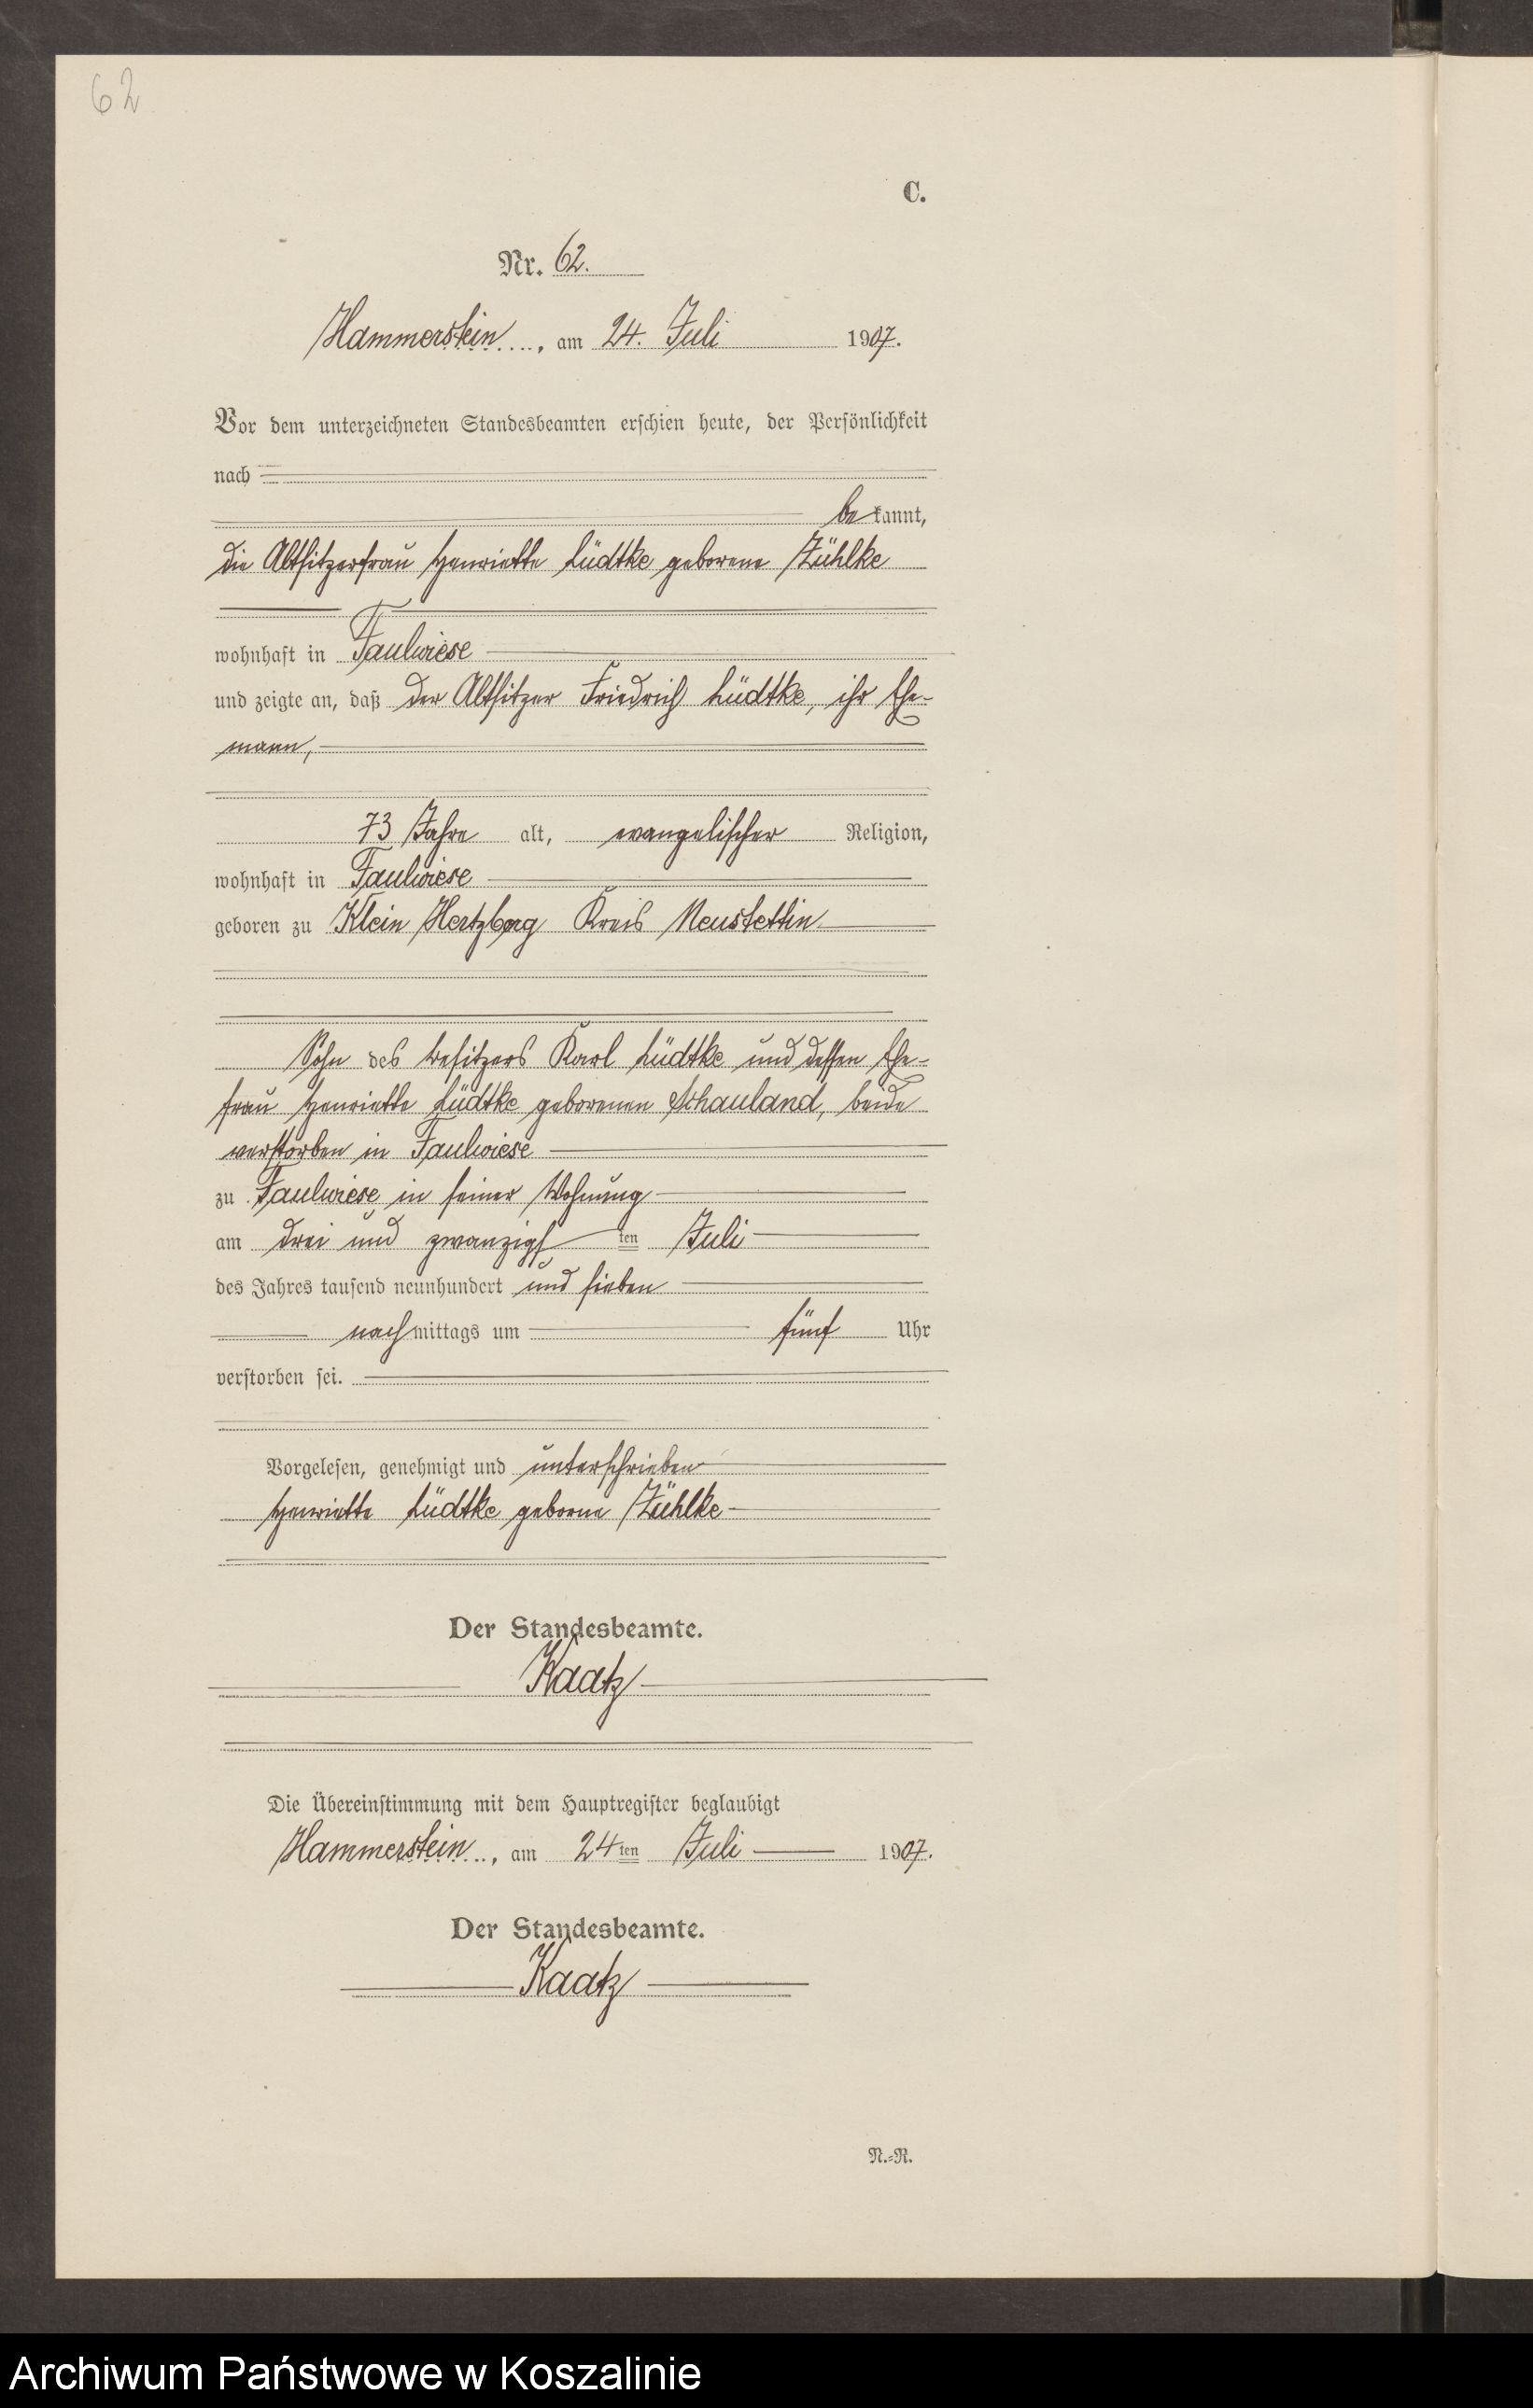 62
C.
Nr. 62.
Hammerstein, am 24. Juli 1907.
Vor dem unterzeichneten Standesbeamten erschien heute, der Persönlichkeit
nach
bekannt,
die Altsitzerfrau Henriette Lüdtke geborene Zühlke
wohnhaft in Faulwiese
und zeigte an, daß der Altsitzer Friedrich Lüdtke, ihr Ehe-
mann,
73 Jahre alt, evangelischer Religion,
wohnhaft in Faulwiese
geboren zu Klein Hertzberg Kreis Neustettin
Sohn des Besitzers Karl Lüdtke und dessen Ehe-
frau Henriette Lüdtke geborenen Schauland, beide
verstorben in Faulwiese
zu Faulwiese, in seiner Wohnung
am drei und zwanzigsten Juli
des Jahres tausend neunhundert und sieben
nachmittags um fünf Uhr
verstorben sei.
Vorgelesen, genehmigt und unterschrieben
Henriette Lüdtke geborne Zühlke
Der Standesbeamte.
Kaatz
Die Übereinstimmung mit dem Hauptregister beglaubigt
Hammerstein, am 24ten Juli 1907.
Der Standesbeamte.
Kaatz
N.=R.
Archiwum Państwowe w Koszalinie